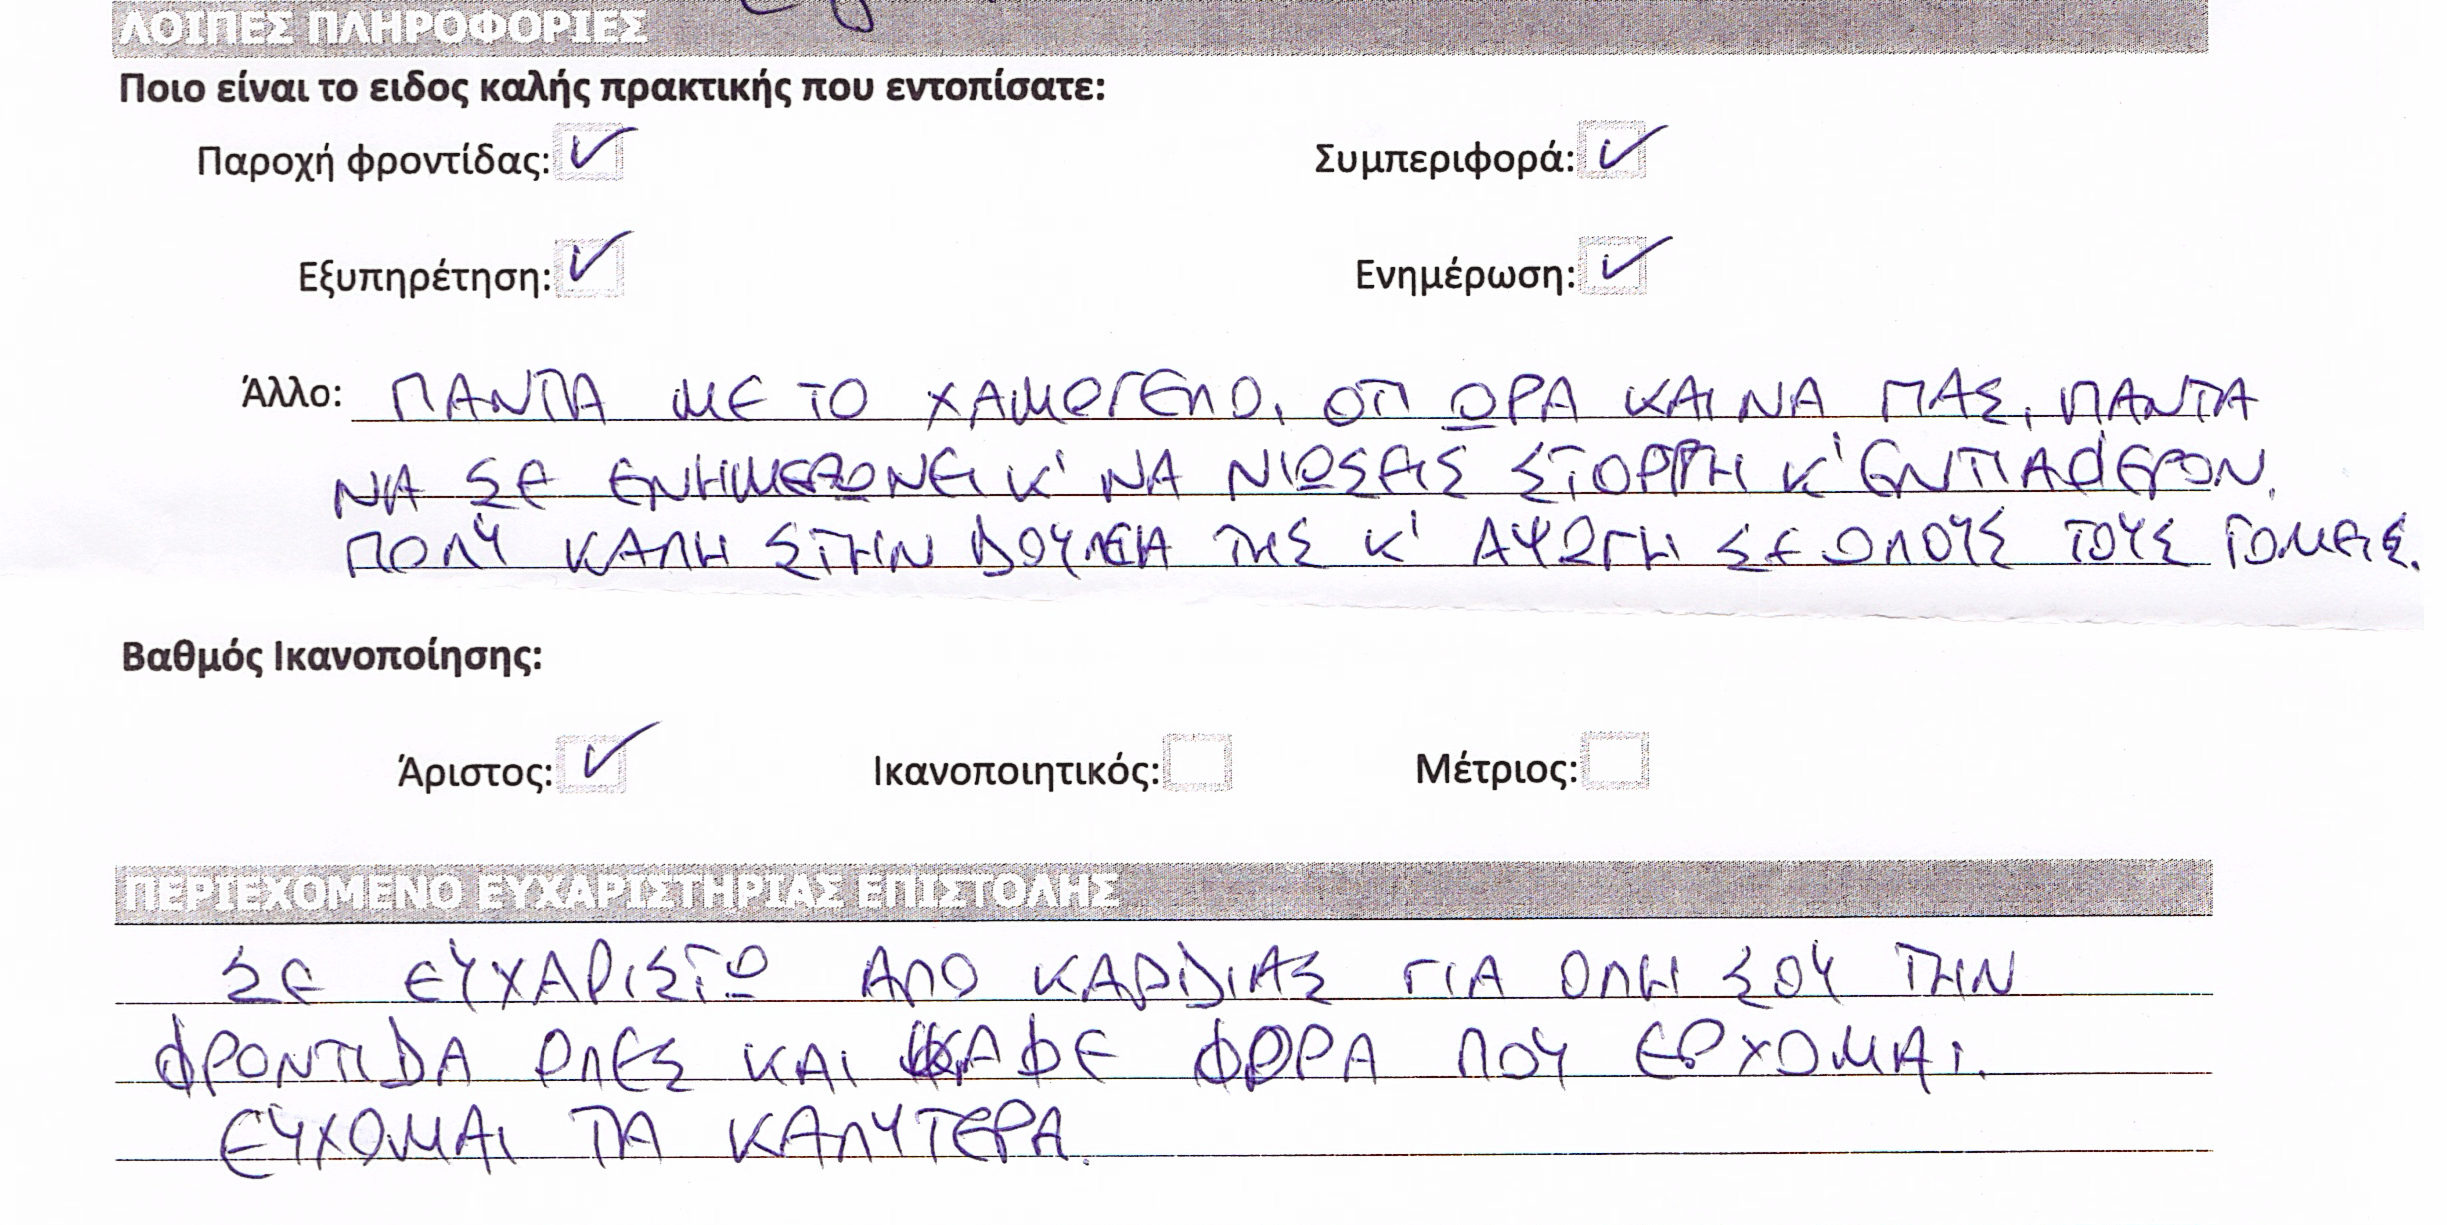 ΛΟΙΠΕΣ ΠΛΗΡΟΦΟΡΙΕΣ
Ποιο είναι το ειδος καλής πρακτικής που εντοπίσατε:
Παροχή φροντίδας: ✓ Συμπεριφορά: ✓
Εξυπηρέτηση: ✓ Ενημέρωση: ✓
Άλλο: ΠΑΝΤΑ ΜΕ ΤΟ ΧΑΜΟΓΕΛΟ, ΟΤΙ ΩΡΑ ΚΑΙ ΝΑ ΠΑΣ, ΠΑΝΤΑ
ΝΑ ΣΕ ΕΝΗΜΕΡΩΝΕΙ Κ' ΝΑ ΝΙΩΣΕΙΣ ΣΤΟΡΓΗ Κ' ΕΝΤΙΑΦΕΡΟΝ.
ΠΟΛΥ ΚΑΛΗ ΣΤΗΝ ΔΟΥΛΕΙΑ ΤΗΣ Κ' ΑΨΩΓΗ ΣΕ ΟΛΟΥΣ ΤΟΥΣ ΤΟΜΕΙΣ.
Βαθμός Ικανοποίησης:
Άριστος: ✓ Ικανοποιητικός: Μέτριος:
ΠΕΡΙΕΧΟΜΕΝΟ ΕΥΧΑΡΙΣΤΗΡΙΑΣ ΕΠΙΣΤΟΛΗΣ
ΣΕ ΕΥΧΑΡΙΣΤΩ ΑΠΟ ΚΑΡΔΙΑΣ ΓΙΑ ΟΛΗ ΣΟΥ ΤΗΝ
ΦΡΟΝΤΙΔΑ ΟΛΕΣ ΚΑΙ ΚΑΘΕ ΦΟΡΑ ΠΟΥ ΕΡΧΟΜΑΙ.
ΕΥΧΟΜΑΙ ΤΑ ΚΑΛΥΤΕΡΑ.